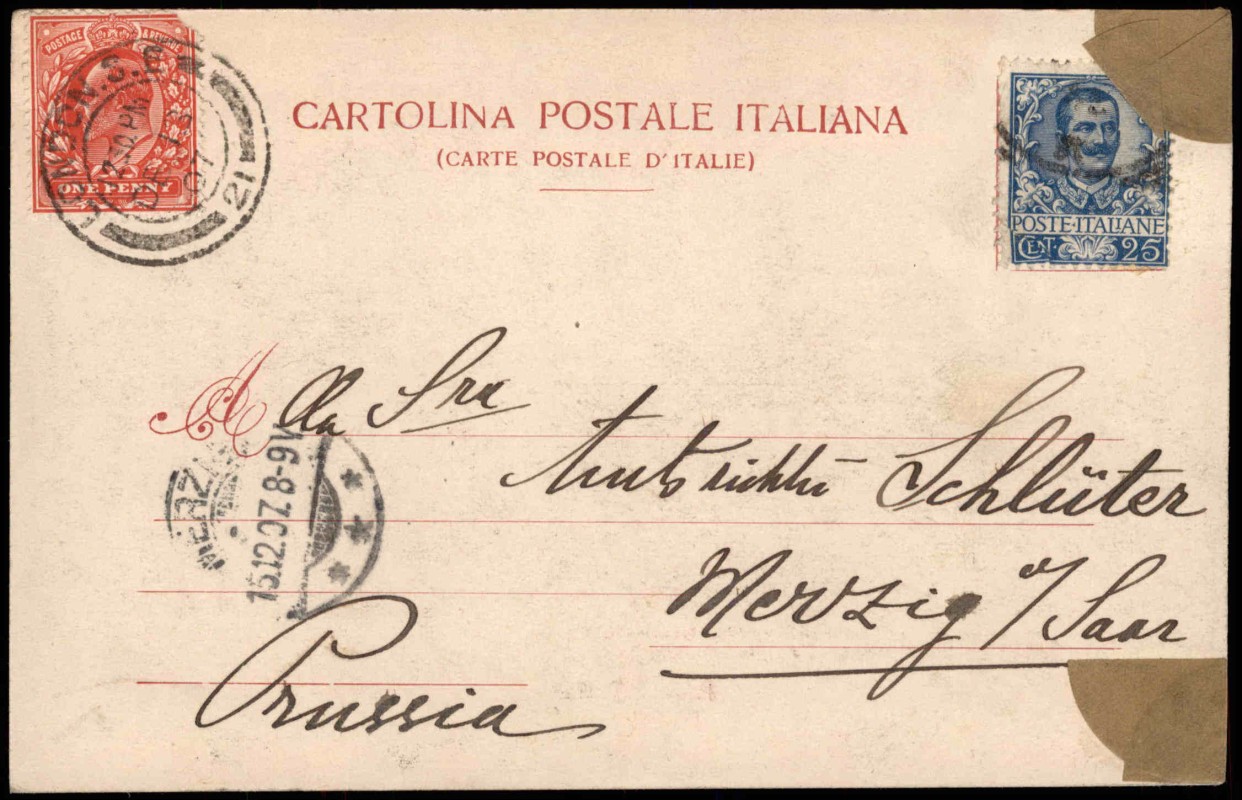 POSTAGE & REVENUE
ONE PENNY
LONDON. S.
12.30 PM
13
07
21
CARTOLINA POSTALE ITALIANA
(CARTE POSTALE D'ITALIE)
POSTE·ITALIANE
CENT. 25
Alla Sra
Amtsrichter Schlüter
Merzig a/Saar
Prussia
MERZIG
15.12.07. 8-9V